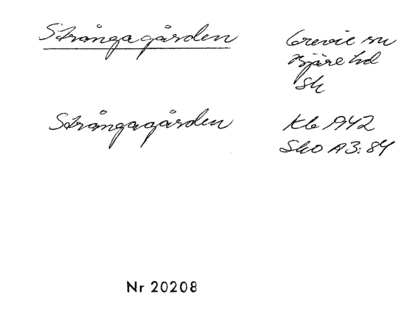 Strångagården
Grevie sn
Bjäre hd
Sk
Strångagården
Kb 1942
SkO A3:84
Nr 20208